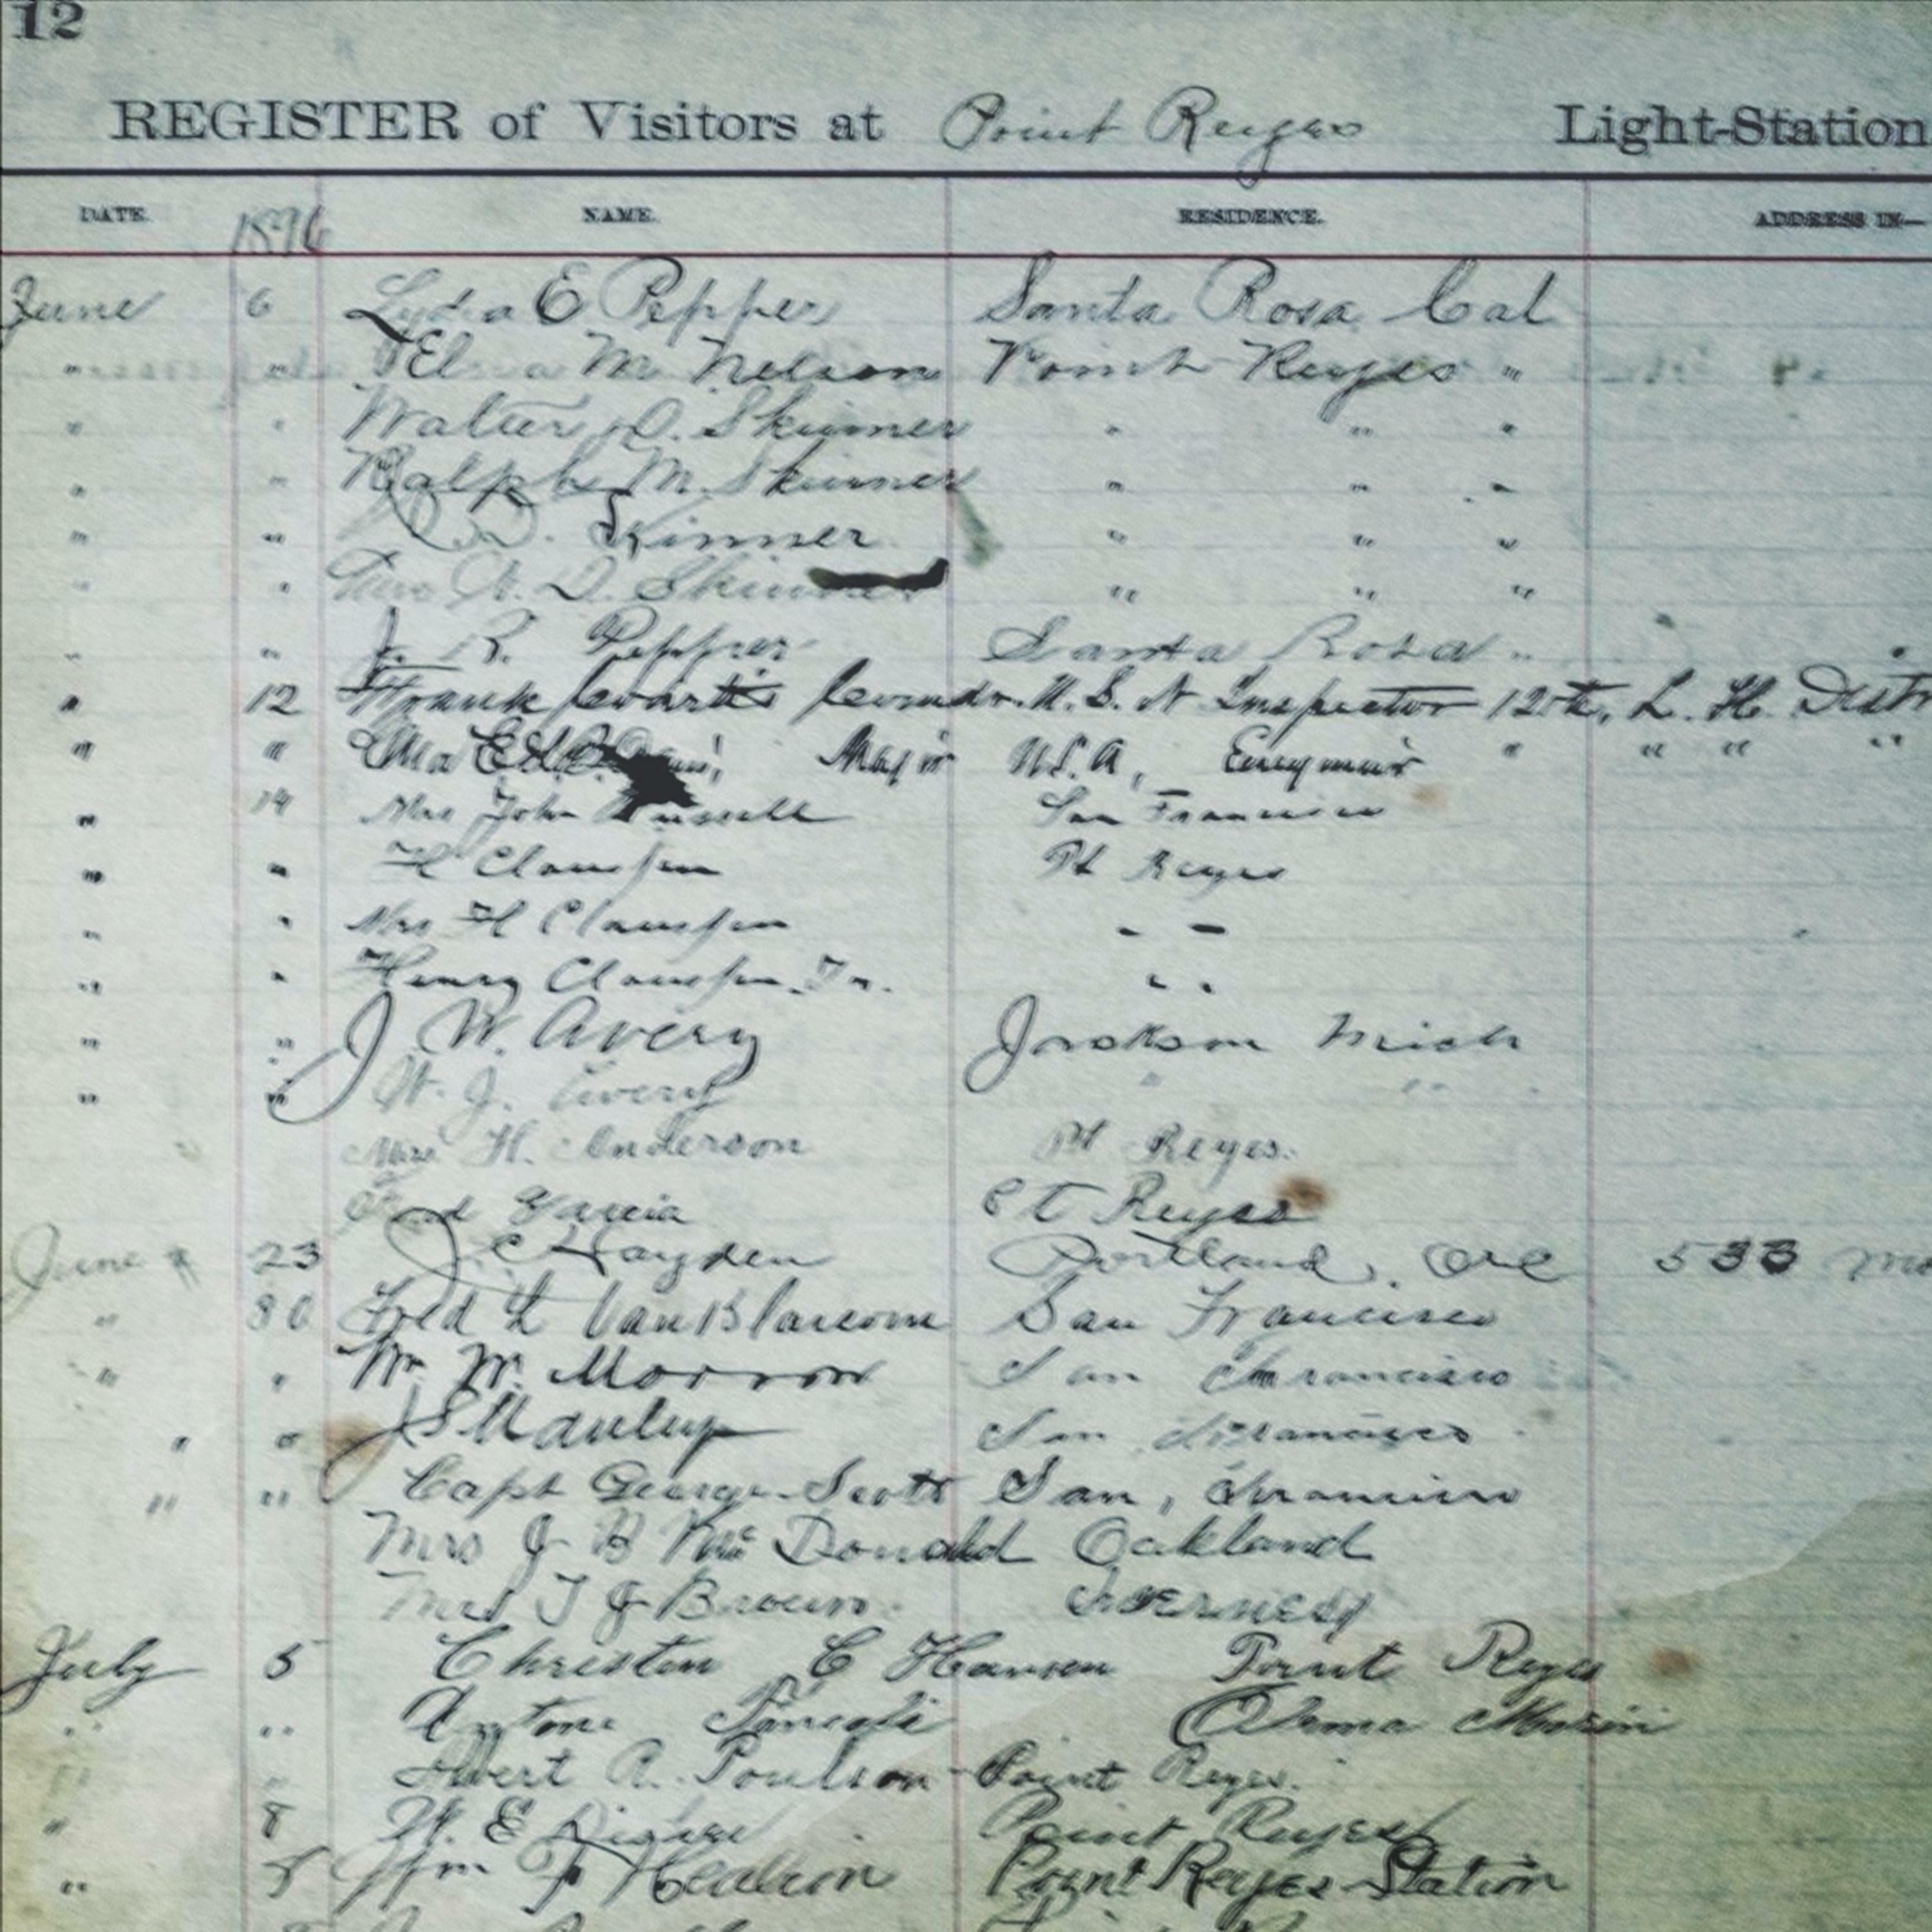 12
REGISTER of Visitors at Point Reyes Light-Station
DATE. 1896 NAME. RESIDENCE. ADDRESS IN—
June 6 Lydia E Pepper Santa Rosa Cal
" " M. Nelson Point Reyes "
" " Walter D. Skinner " " "
" " Ralph M. Skinner " " "
" " D. Skinner " " "
" " D. Skinner " " "
" " J. R. Pepper Santa Rosa "
" 12 Frank Courtis Commdr. U.S.N Inspector 12th. L. H. Distr
" " Major U.S.A, " " " "
" 14 Mrs John Russell San Francisco
" " H Claussen Pt Reyes
" " Mrs H Claussen " "
" " Henry Claussen Jr. " "
" " J W. Avery Jackson Mich
" " W. J. Avery " "
H. Anderson Pt Reyes.
Garcia Pt Reyes
June 23 J C Hayden Portland, Ore 533
" 30 Fred L Van Blarcom San Francisco
" " Wm W. Morrow San Francisco
" " San Francisco
" " Capt George Scott San, Francisco
Mrs J B McDonald Oakland
Mrs T J Brown Inverness
July 5 Christin C Hansen Point Reyes
" " Antone Marin
" " Albert A. Poulson Point Reyes.
" 8 W. E Point Reyes
" 8 Wm Point Reyes Station